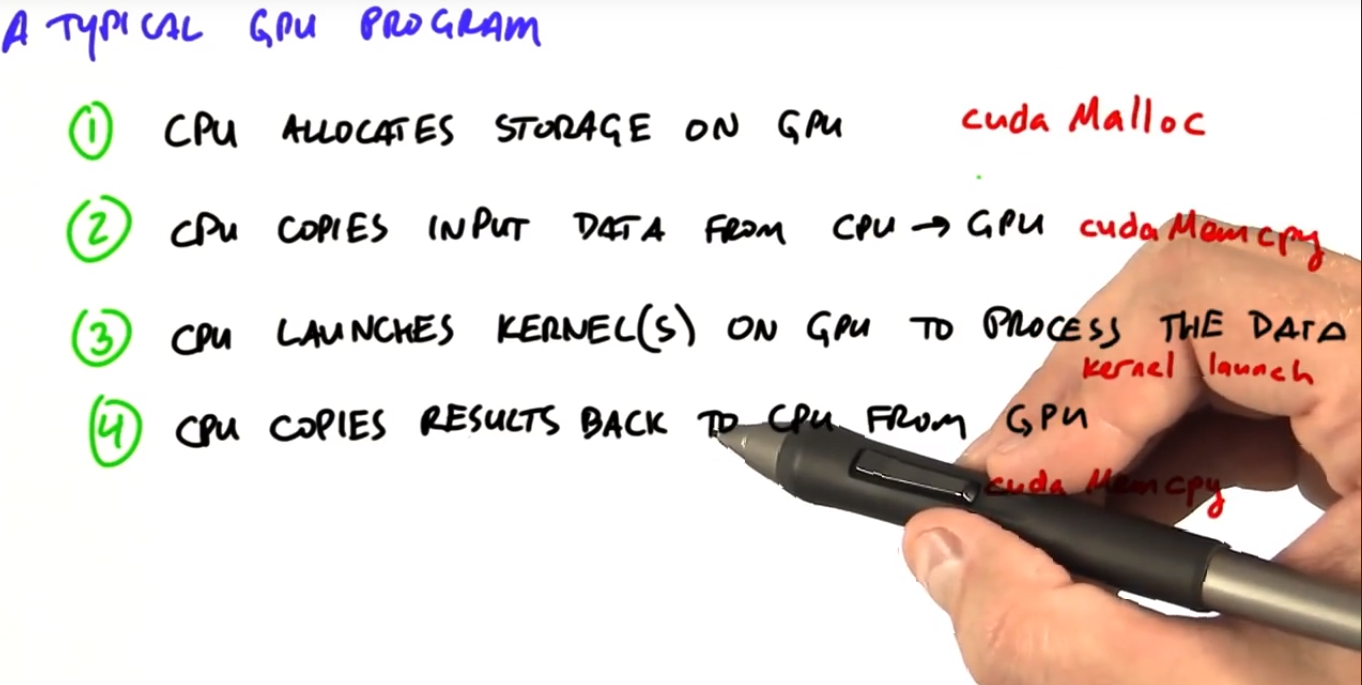 A TYPICAL GPU PROGRAM
1 CPU ALLOCATES STORAGE ON GPU cuda Malloc
2 CPU COPIES INPUT DATA FROM CPU → GPU cuda Memcpy
3 CPU LAUNCHES KERNEL(S) ON GPU TO PROCESS THE DATA
kernel launch
4 CPU COPIES RESULTS BACK TO CPU FROM GPU
cuda Memcpy